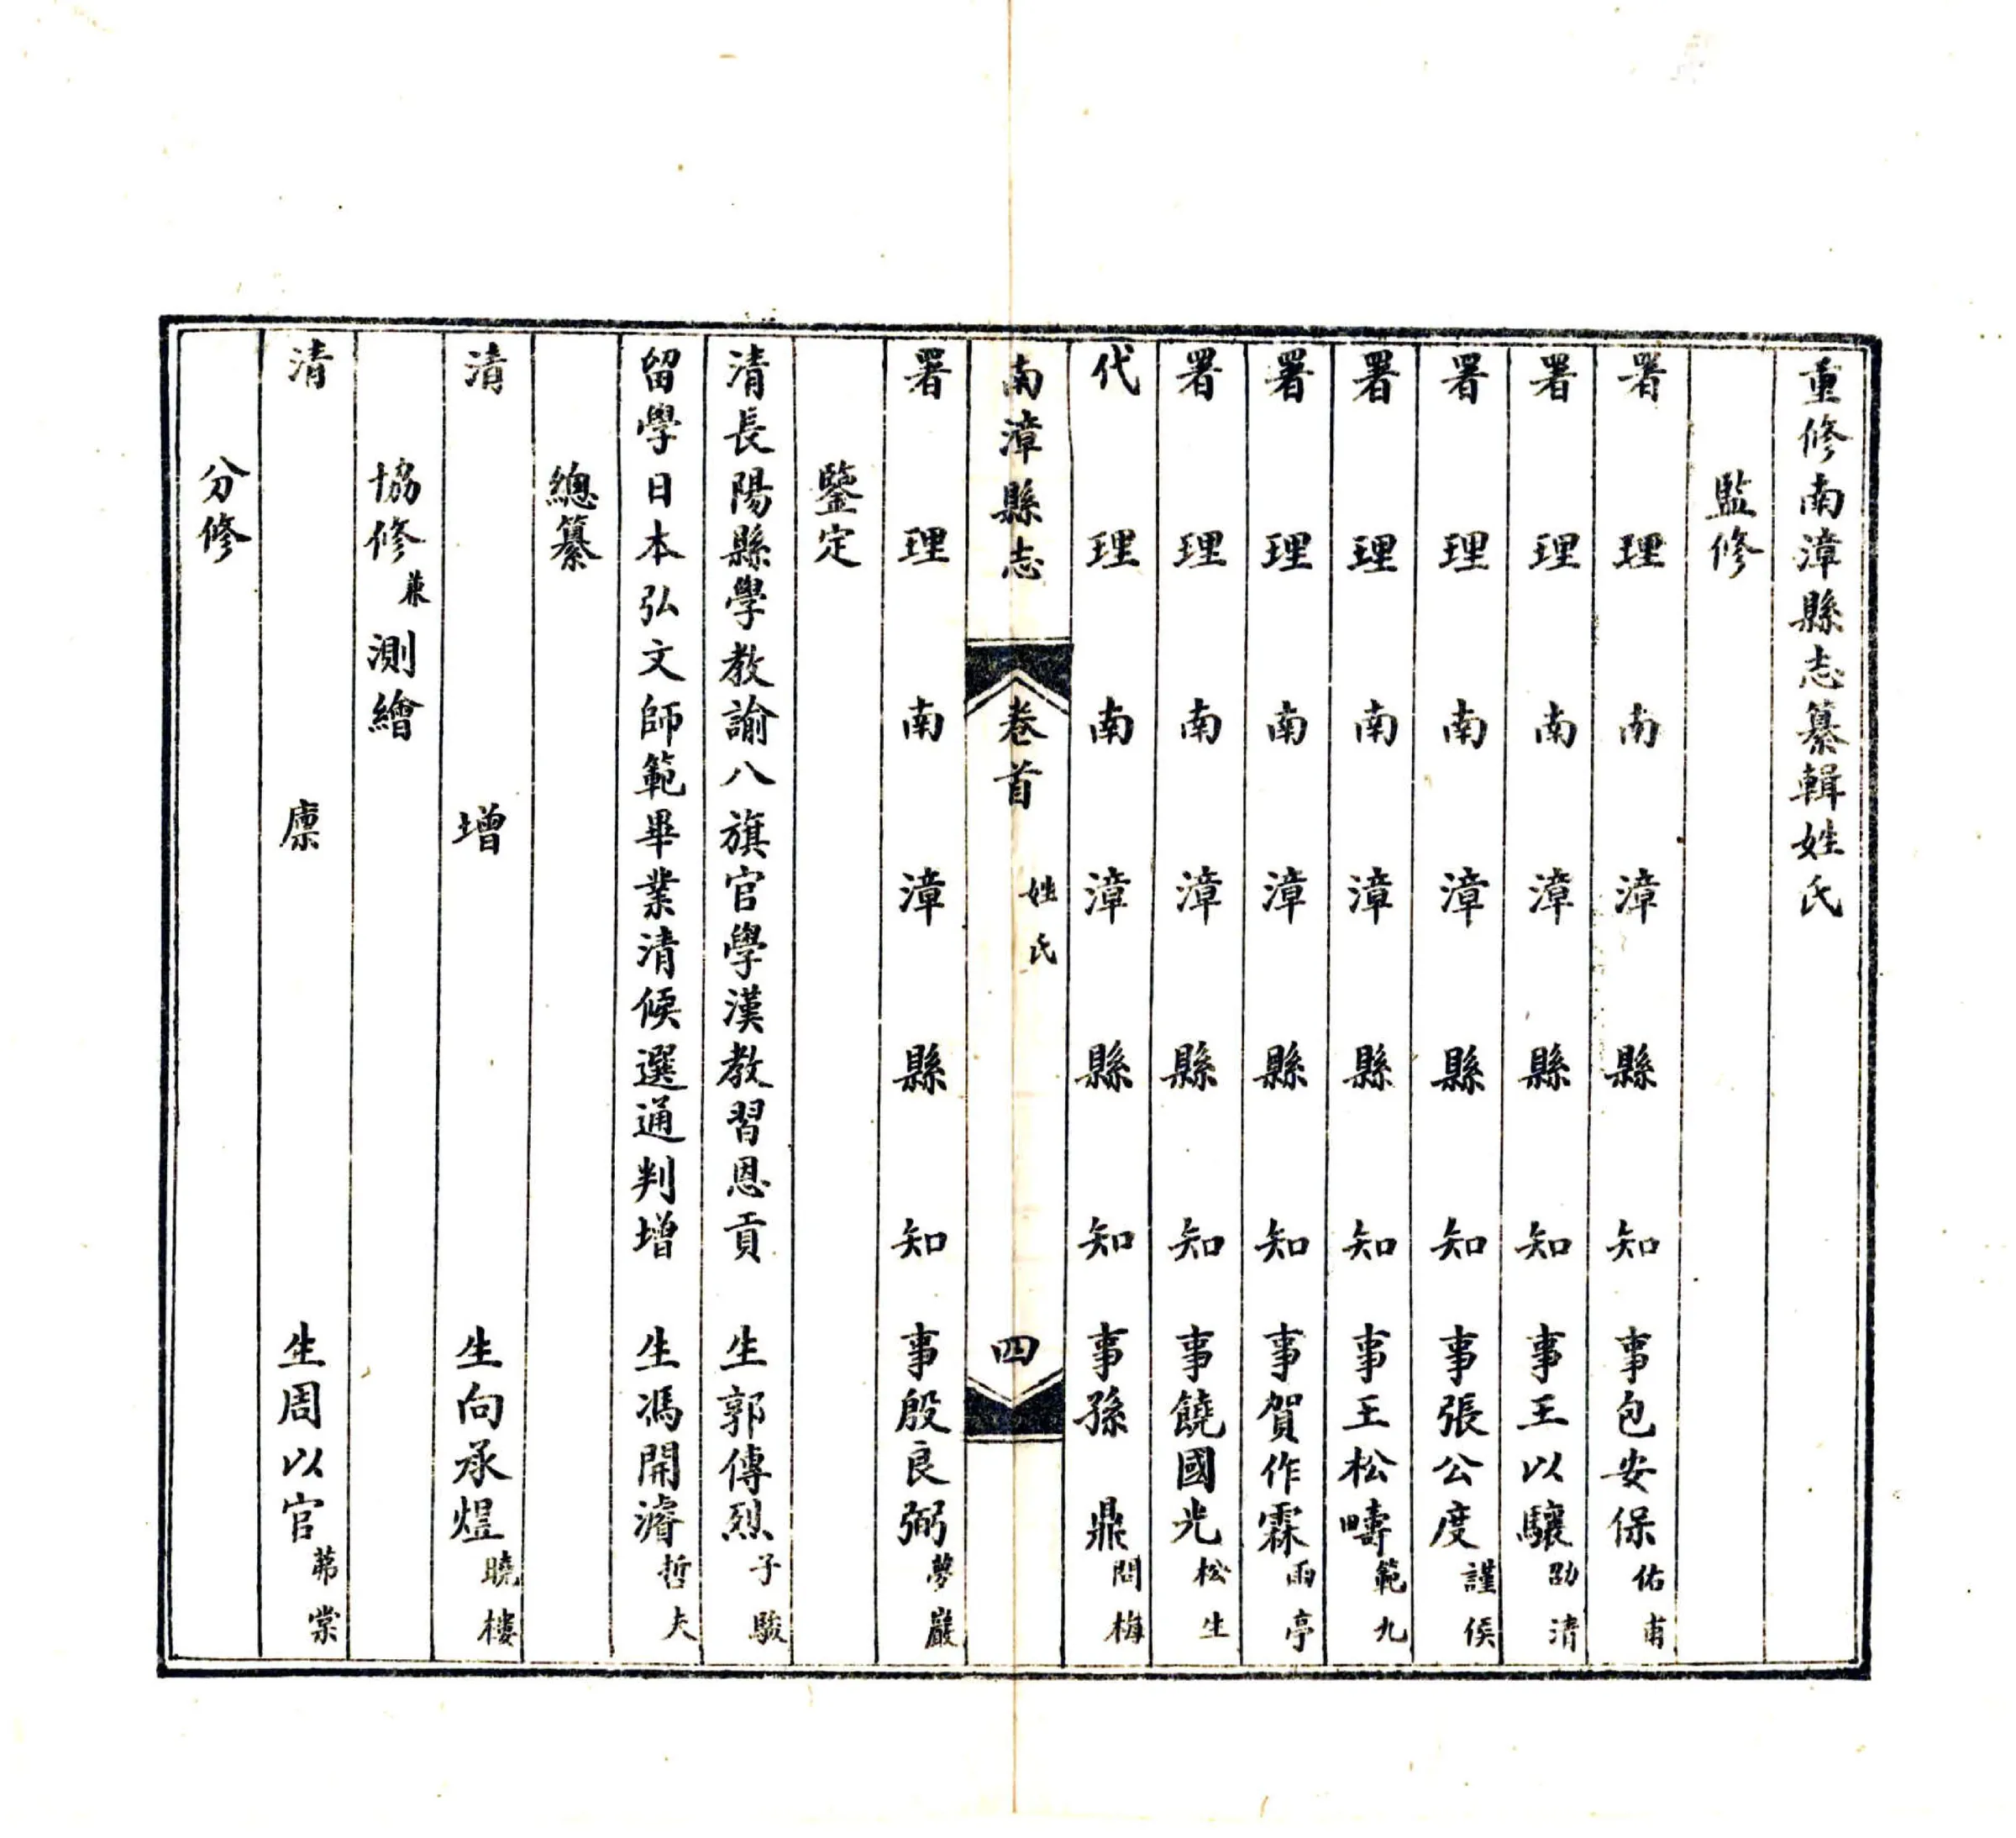 重修南漳縣志纂輯姓氏
監修
署理南漳縣知事包安保佑甫
署理南漳縣知事王以驤劭清
署理南漳縣知事張公度謹侯
署理南漳縣知事王松疇範九
署理南漳縣知事賀作霖雨亭
署理南漳縣知事饒國光松生
代理南漳縣知事孫鼎問梅
南漳縣志 卷首 姓氏 四
署理南漳縣知事殷良弼夢巖
鑒定
清長陽縣學教諭八旗官學漢教習恩貢生郭傳烈子駿
留學日本弘文師範畢業清候選通判增生馮開濬哲夫
總纂
清增生向承煜曉樓
協修兼測繪
清廩生周以官芾棠
分修